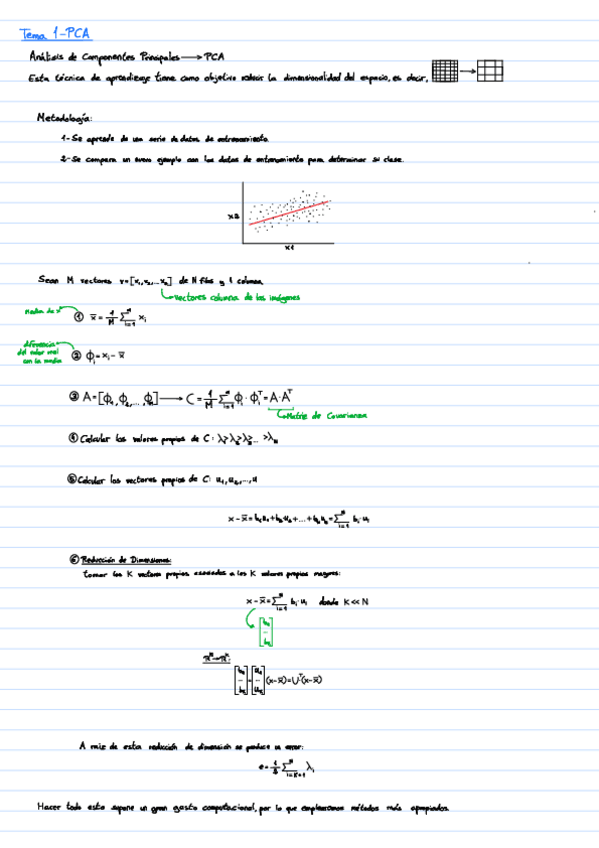 Tema 1-PCA
Análisis de Componentes Principales → PCA
Esta técnica de aprendizaje tiene como objetivo reducir la dimensionalidad del espacio, es decir, →
Metodología:
1- Se aprende de una serie de datos de entrenamiento.
2- Se compara un nuevo ejemplo con los datos de entrenamiento para determinar su clase.
x2
x1
Sean M vectores v=[v₁,v₂,...vₙ] de N filas y 1 columna.
vectores columna de las imágenes
Media de x
① x̄ = 1/M ∑ᵢ₌₁ᴹ xᵢ
diferencia
del valor real
con la media
② ϕᵢ = xᵢ - x̄
③ A=[ϕ₁, ϕ₂, ..., ϕₙ] → C = 1/M ∑ᵢ₌₁ᴹ ϕᵢ · ϕᵢᵀ = A·Aᵀ
Matriz de Covarianza
④ Calcular los valores propios de C: λ₁>λ₂>λ₃... >λₙ
⑤ Calcular los vectores propios de C: u₁, u₂, ..., u
x - x̄ = b₁u₁ + b₂u₂ + ... + bₙuₙ = ∑ᵢ₌₁ᴺ bᵢ·uᵢ
⑥ Reducción de Dimensiones:
tomar los K vectores propios asociados a los K valores propios mayores:
x - x̄ = ∑ᵢ₌₁ᴷ bᵢ·uᵢ donde K << N
[b₁ ... bₖ]
ℝᴺ→ℝᴷ:
[b₁ ... bₖ] = [u₁ ... uₖ] (x-x̄) = Uᵀ(x-x̄)
A raiz de esta reducción de dimensión se produce un error:
e = 1/2 ∑ᵢ₌ₖ₊₁ᴺ λᵢ
Hacer todo esto supone un gran gasto computacional, por lo que emplearemos métodos más apropiados.